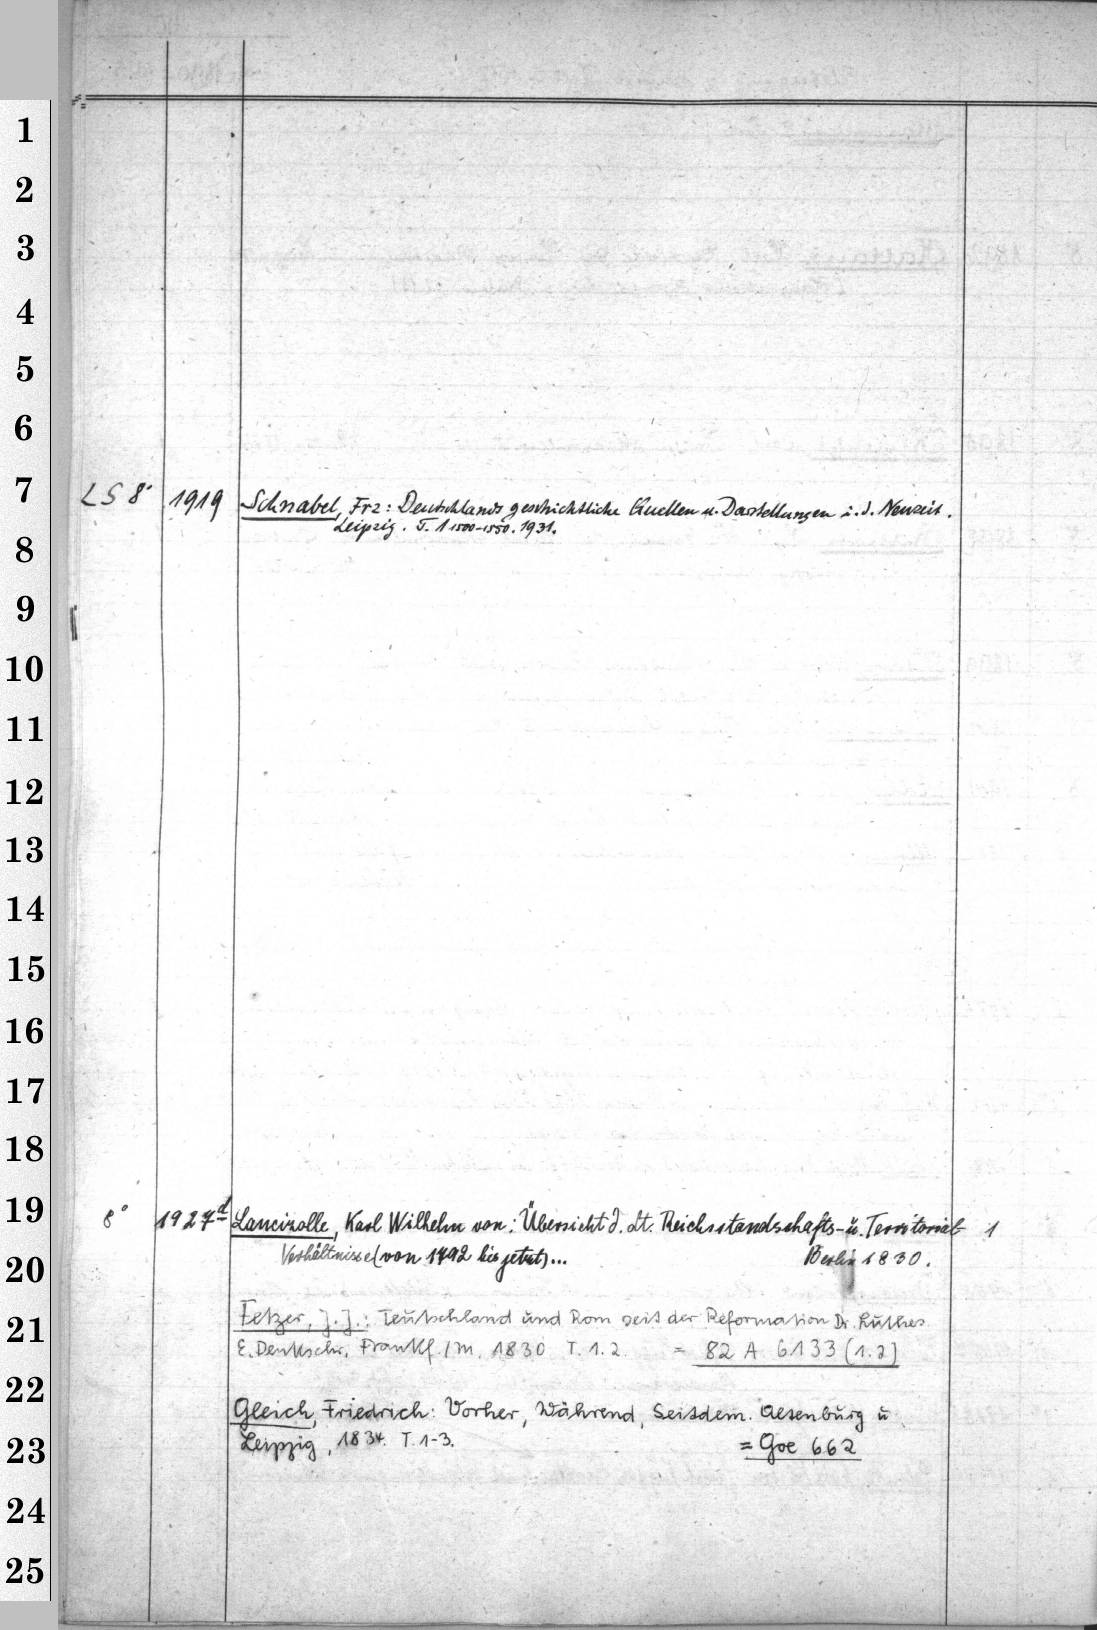 1
2
3
4
5
6
7
8
9
10
11
12
13
14
15
16
17
18
19
20
21
22
23
24
25
LS 8° 1919 Schnabel, Frz: Deutschlands geschichtliche Quellen u. Darstellungen i. d. Neuzeit.
Leipzig. T. 1 1500-1550. 1931.
8° 1927d Lancizolle, Karl Wilhelm von: Übersicht d. dt. Reichsstandschafts- u. Territorial- 1
Verhältnisse (von 1792 bis jetzt)... Berlin 1830.
Fetzer, J. J.: Teutschland und Rom seit der Reformation Dr. Luthers
E. Denkschr. Frankf./M. 1830 T. 1.2. = 82 A 6133 (1.2)
Gleich, Friedrich: Vorher, Während, Seitdem. Altenburg u.
Leipzig, 1834. T. 1-3. = Goe 662